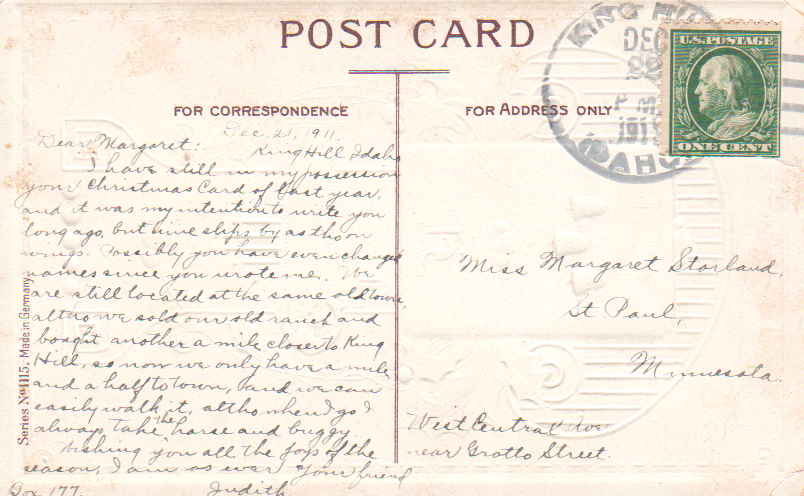 POST CARD
FOR CORRESPONDENCE
FOR ADDRESS ONLY
KING HILL
DEC
22
P M
191
IDAHO
U.S. POSTAGE
ONE CENT
Dec. 21, 1911.
King Hill Idaho
Dear Margaret:
I have still in my possession
your Christmas Card of last year,
and it was my intention to write you
long ago, but time slips by as tho on
wings. Possibly you have even changed
names since you wrote me. We
are still located at the same old town,
altho we sold our old ranch and
bought another a mile closer to King
Hill, so now we only have a mile
and a half to town, and we can
easily walk it, altho when I go I
always take the horse and buggy.
Wishing you all the joys of the
season, I am as ever your friend
Box 177. Judith
Miss Margaret Storland,
St Paul,
Minnesota.
West Central Ave
near Grotto Street.
Series No 4115. Made in Germany